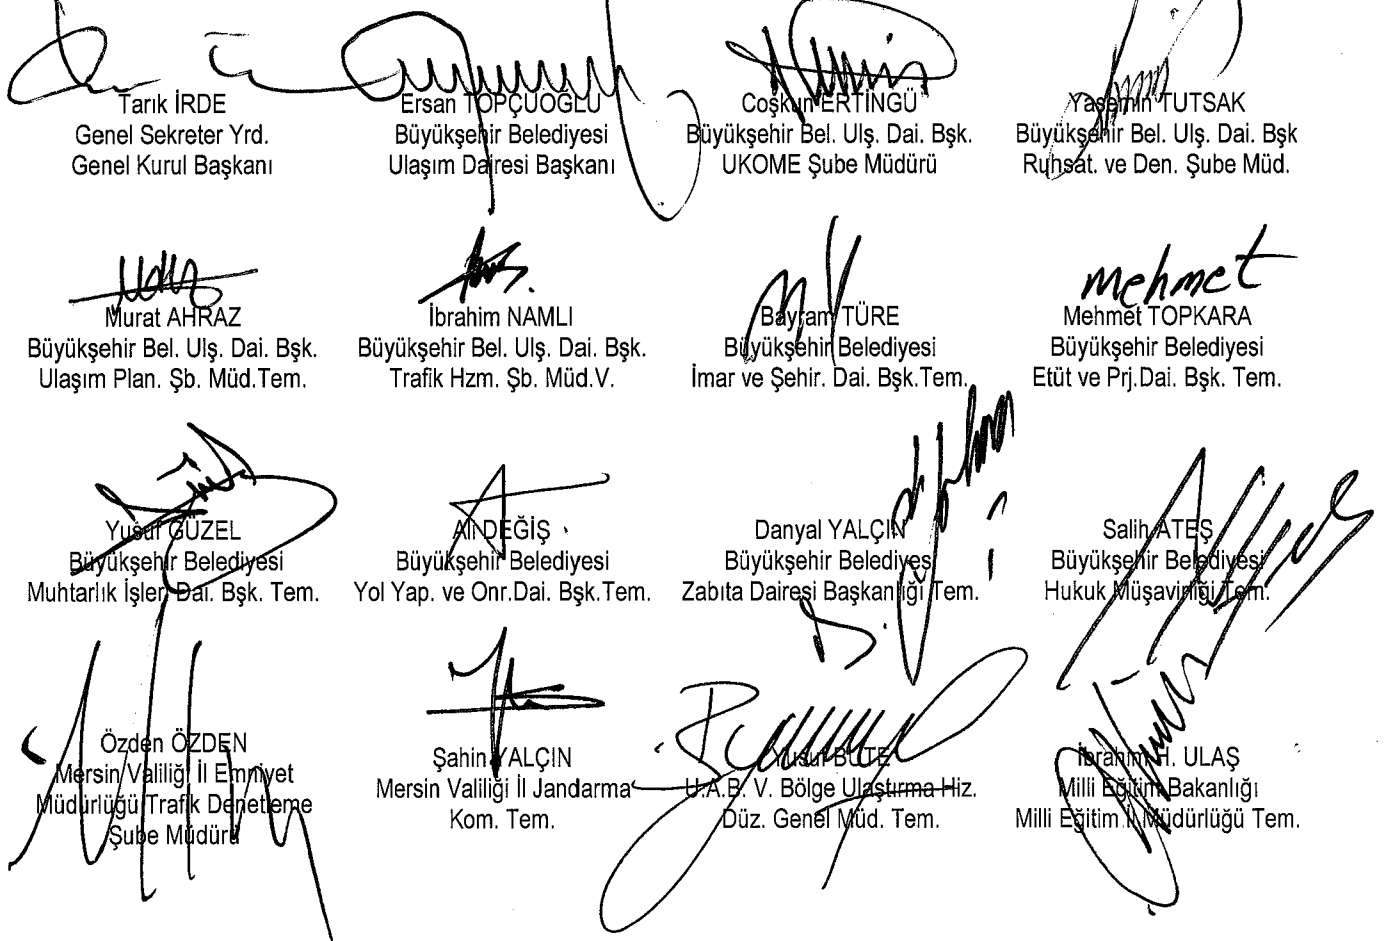 Tarık İRDE
Genel Sekreter Yrd.
Genel Kurul Başkanı
Ersan TOPÇUOĞLU
Büyükşehir Belediyesi
Ulaşım Dairesi Başkanı
Coşkun ERTİNGÜ
Büyükşehir Bel. Ulş. Dai. Bşk.
UKOME Şube Müdürü
Yasemin TUTSAK
Büyükşehir Bel. Ulş. Dai. Bşk
Ruhsat. ve Den. Şube Müd.
Murat AHRAZ
Büyükşehir Bel. Ulş. Dai. Bşk.
Ulaşım Plan. Şb. Müd.Tem.
İbrahim NAMLI
Büyükşehir Bel. Ulş. Dai. Bşk.
Trafik Hzm. Şb. Müd.V.
Bayram TÜRE
Büyükşehir Belediyesi
İmar ve Şehir. Dai. Bşk.Tem.
mehmet
Mehmet TOPKARA
Büyükşehir Belediyesi
Etüt ve Prj.Dai. Bşk. Tem.
Yusuf GÜZEL
Büyükşehir Belediyesi
Muhtarlık İşler. Dai. Bşk. Tem.
Ali DEĞİŞ
Büyükşehir Belediyesi
Yol Yap. ve Onr.Dai. Bşk.Tem.
Danyal YALÇIN
Büyükşehir Belediyesi
Zabıta Dairesi Başkanlığı Tem.
Salih ATEŞ
Büyükşehir Belediyesi
Hukuk Müşavirliği Tem.
Özden ÖZDEN
Mersin Valiliği İl Emniyet
Müdürlüğü Trafik Denetleme
Şube Müdürü
Şahin YALÇIN
Mersin Valiliği İl Jandarma
Kom. Tem.
Yusuf BUTE
U.A.B. V. Bölge Ulaştırma Hiz.
Düz. Genel Müd. Tem.
İbrahim H. ULAŞ
Milli Eğitim Bakanlığı
Milli Eğitim İl Müdürlüğü Tem.